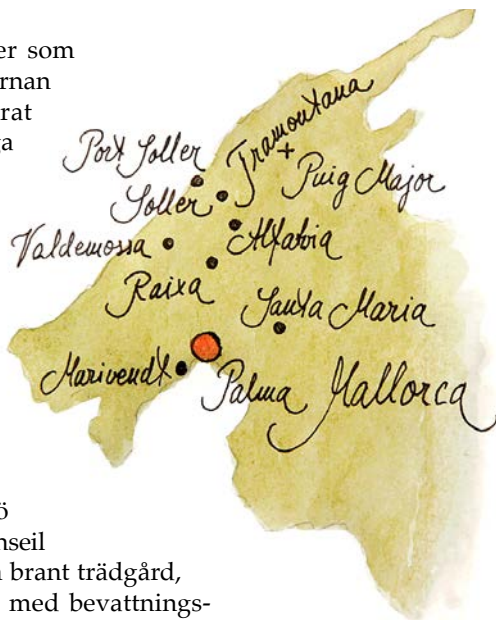 er som
rnan
rat
ga
Port Soller
Tramontana
Soller
Puig Major
Valdemossa
Alfabia
Raixa
Santa Maria
Marivendt
Palma
Mallorca
ö
nseil
brant trädgård,
med bevattnings-